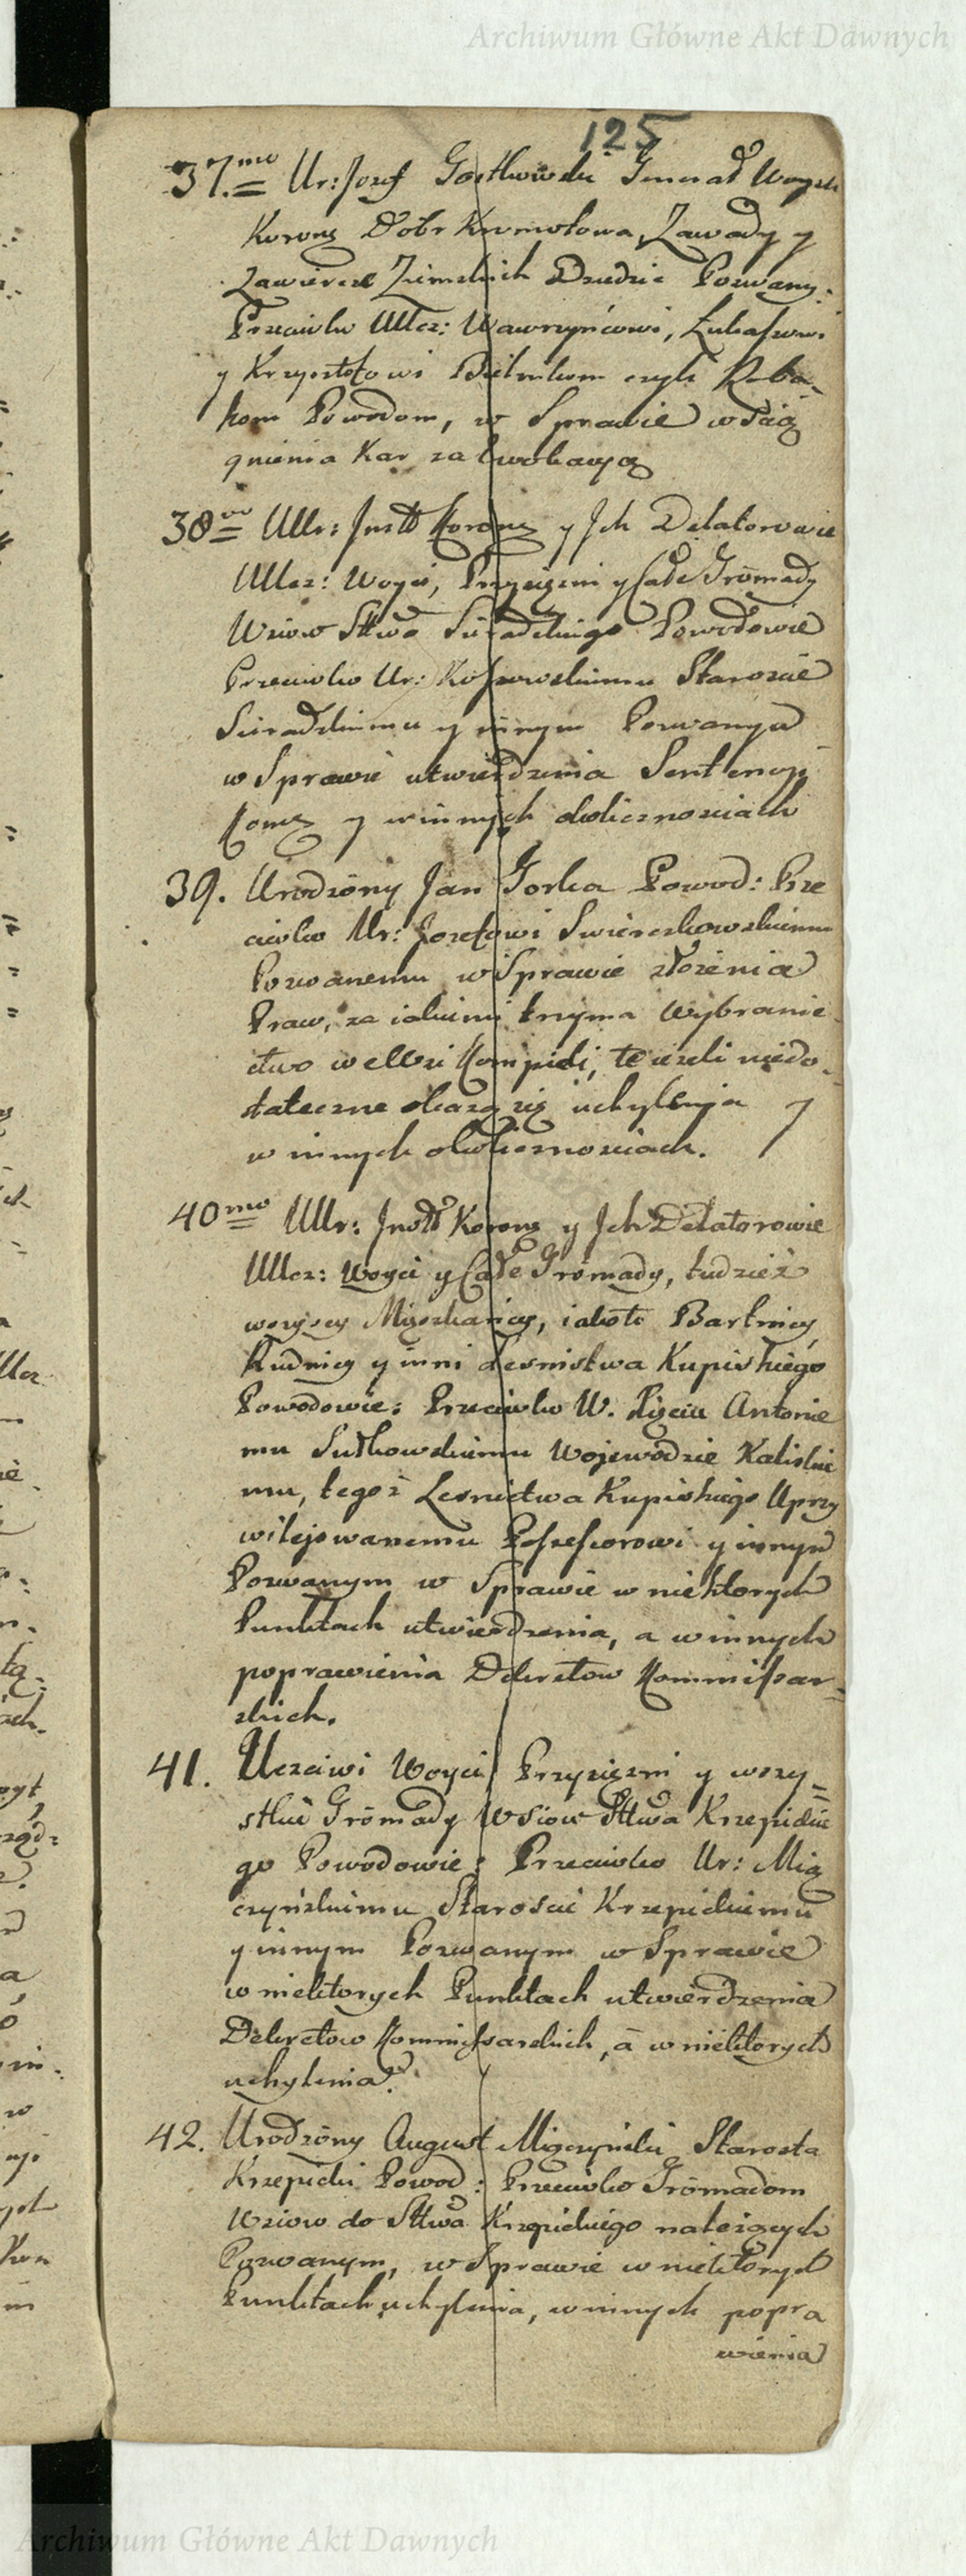 Archiwum Główne Akt Dawnych
125
37.mo Ur: Jozef Gostkowski Generał Woysk
Korony Dobr Kromołowa, Zawady y
Zawiercie Ziemskich Dziedzic Pozwany.
Przeciwko Ucz: Wawrzyńcowi, Łukaszowi
y Krzysztofowi Bielnikom czyli Roba-
kom Powodom, w Sprawie wścią
gnienia Kar za
38vo Ur: Instt Korony y Jch Delatorowie
Ucz: Woyci, Przysięzni y Całe Gromady
Wsiow Sttwa Siradzkiego Powodowie
Przeciwko Ur: Kossowskiemu Staroscie
Siradzkiemu y innym Pozwanym
w Sprawie utwierdzenia Sentencyi
Komis y w innych okolicznosciach
39. Urodzony Jan Gorka Powod: Prze
ciwko Ur: Jozefowi Swierczkowskiemu
Pozwanemu w Sprawie złożenia
Praw, za iakiemi trzyma Wybranie
ctwo we Wsi te ieżeli niedo-
stateczne okazą się uchylenia y
w innych okolicznosciach.
40mo Ur: Instt Korony y Jch Delatorowie
Ucz: Woyci y Całe Gromady, tudzież
wszyscy Mieszkańcy, iakoto Bartnicy,
Rudnicy y inni Lesnictwa Kupiskiego
Powodowie: Przeciwko W. Xięciu Antonie
mu Sułkowskiemu Wojewodzie Kaliskie
mu, tegoż Lesnictwa Kupiskiego Uprzy
wilejowanemu Possessorowi y innym
Pozwanym w Sprawie w niektorych
Punktach utwierdzenia, a w innych
poprawienia Dekretow Kommissar-
skich.
41. Uczciwi Woyci Przysięzni y wszy-
stkie Gromady Wsiow Sttwa Krzepickie
go Powodowie: Przeciwko Ur: Mią
czyńskiemu Staroscie Krzepickiemu
y innym Pozwanym w Sprawie
w niektorych Punktach utwierdzenia
Dekretow Kommissarskich, a w niektorych
uchylenia.
42. Urodzony August Miączyński Starosta
Krzepicki Powod: Przeciwko Gromadom
Wsiow do Sttwa Krzepickiego należących
Pozwanym, w Sprawie w niektorych
Punktach uchylenia, w innych popra
wienia
Archiwum Główne Akt Dawnych